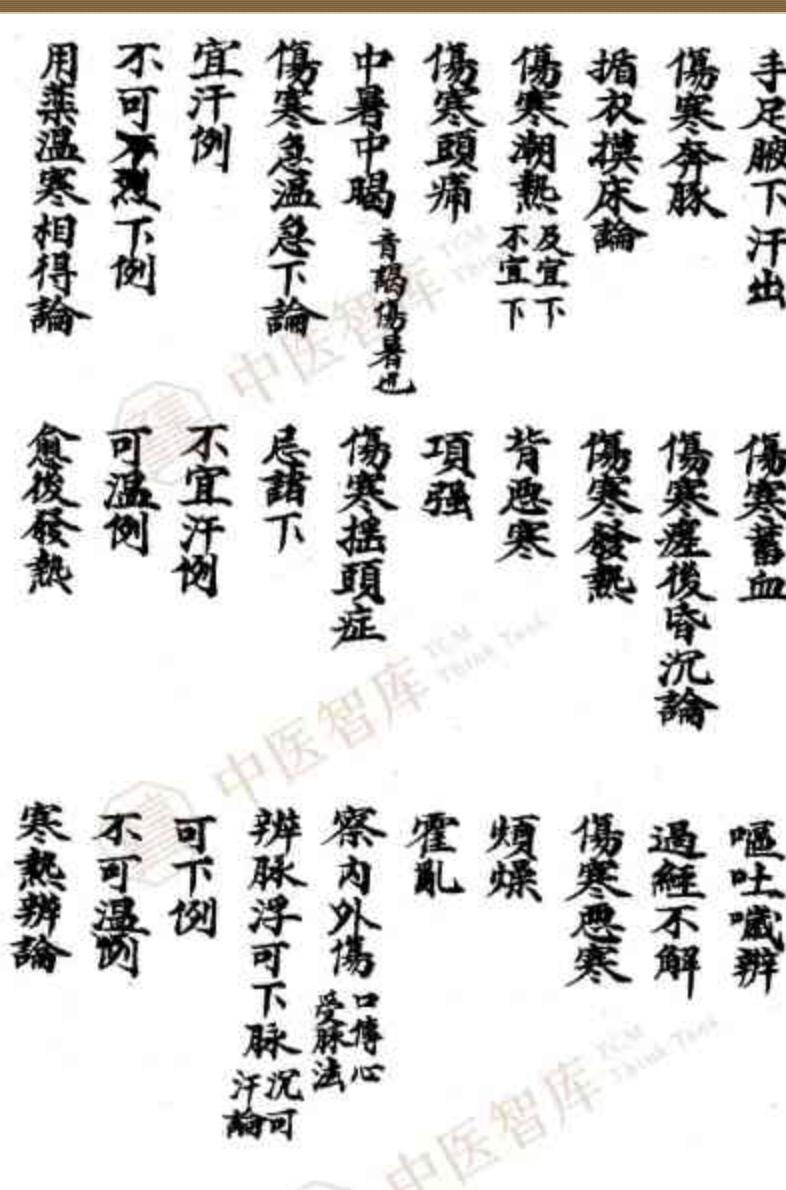 手足腋下汗出
傷寒蓄血
嘔吐噦辨
傷寒奔豚
傷寒瘥後昏沉論
過經不解
揗衣摸床論
傷寒發熱
傷寒惡寒
傷寒潮熱 及宜下不宜下
背惡寒
煩燥
傷寒頭痛
項强
霍亂
中暑中暍 音謁傷暑也
傷寒摇頭症
察內外傷 口傳心受脉法
傷寒急温急下論
忌諸下
辨脉浮可下脉沉可汗論
宜汗例
不宜汗例
可下例
不可下例
可温例
不可温例
用藥温寒相得論
愈後發熱
寒熱辨論
中医智库
TCM Think Tank
中医智库
TCM Think Tank
中医智库
TCM Think Tank